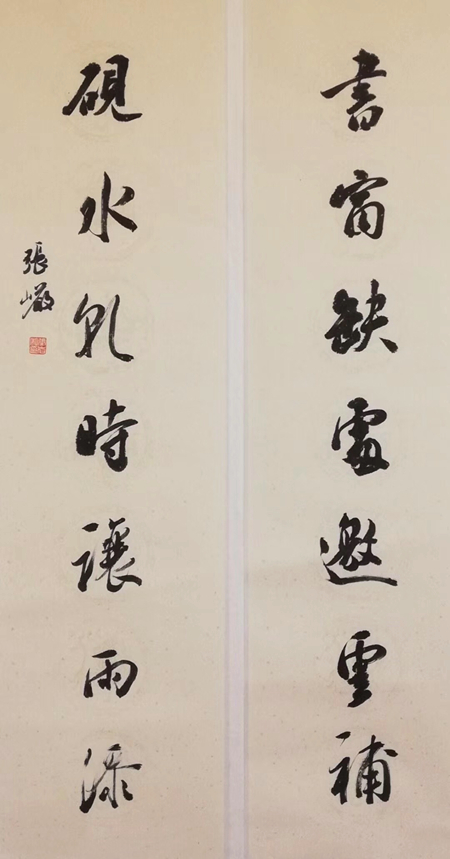 書窗缺處邀雲補
硯水乾時讓雨添
張巖